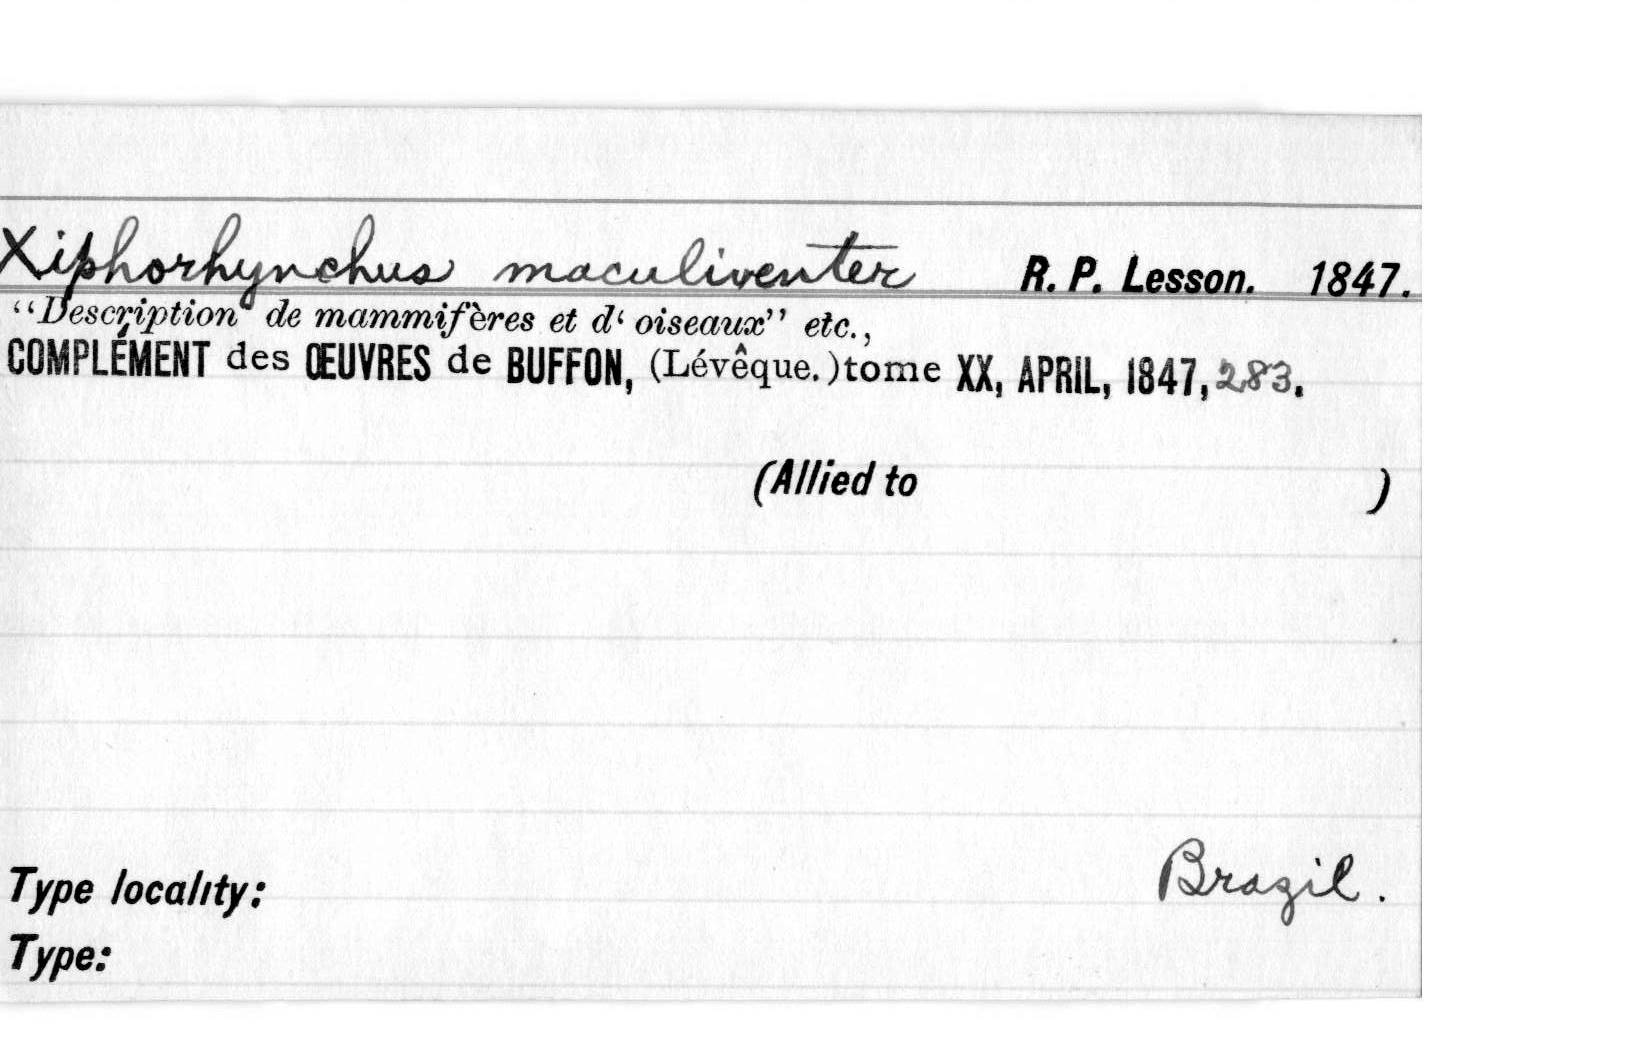 Xiphorhynchus maculiventer R. P. Lesson. 1847.
“Description de mammifères et d‘ oiseaux” etc.,
COMPLÉMENT des ŒUVRES de BUFFON, (Lévêque.) tome XX, APRIL, 1847, 283.
(Allied to )
Type locality: Brazil.
Type: